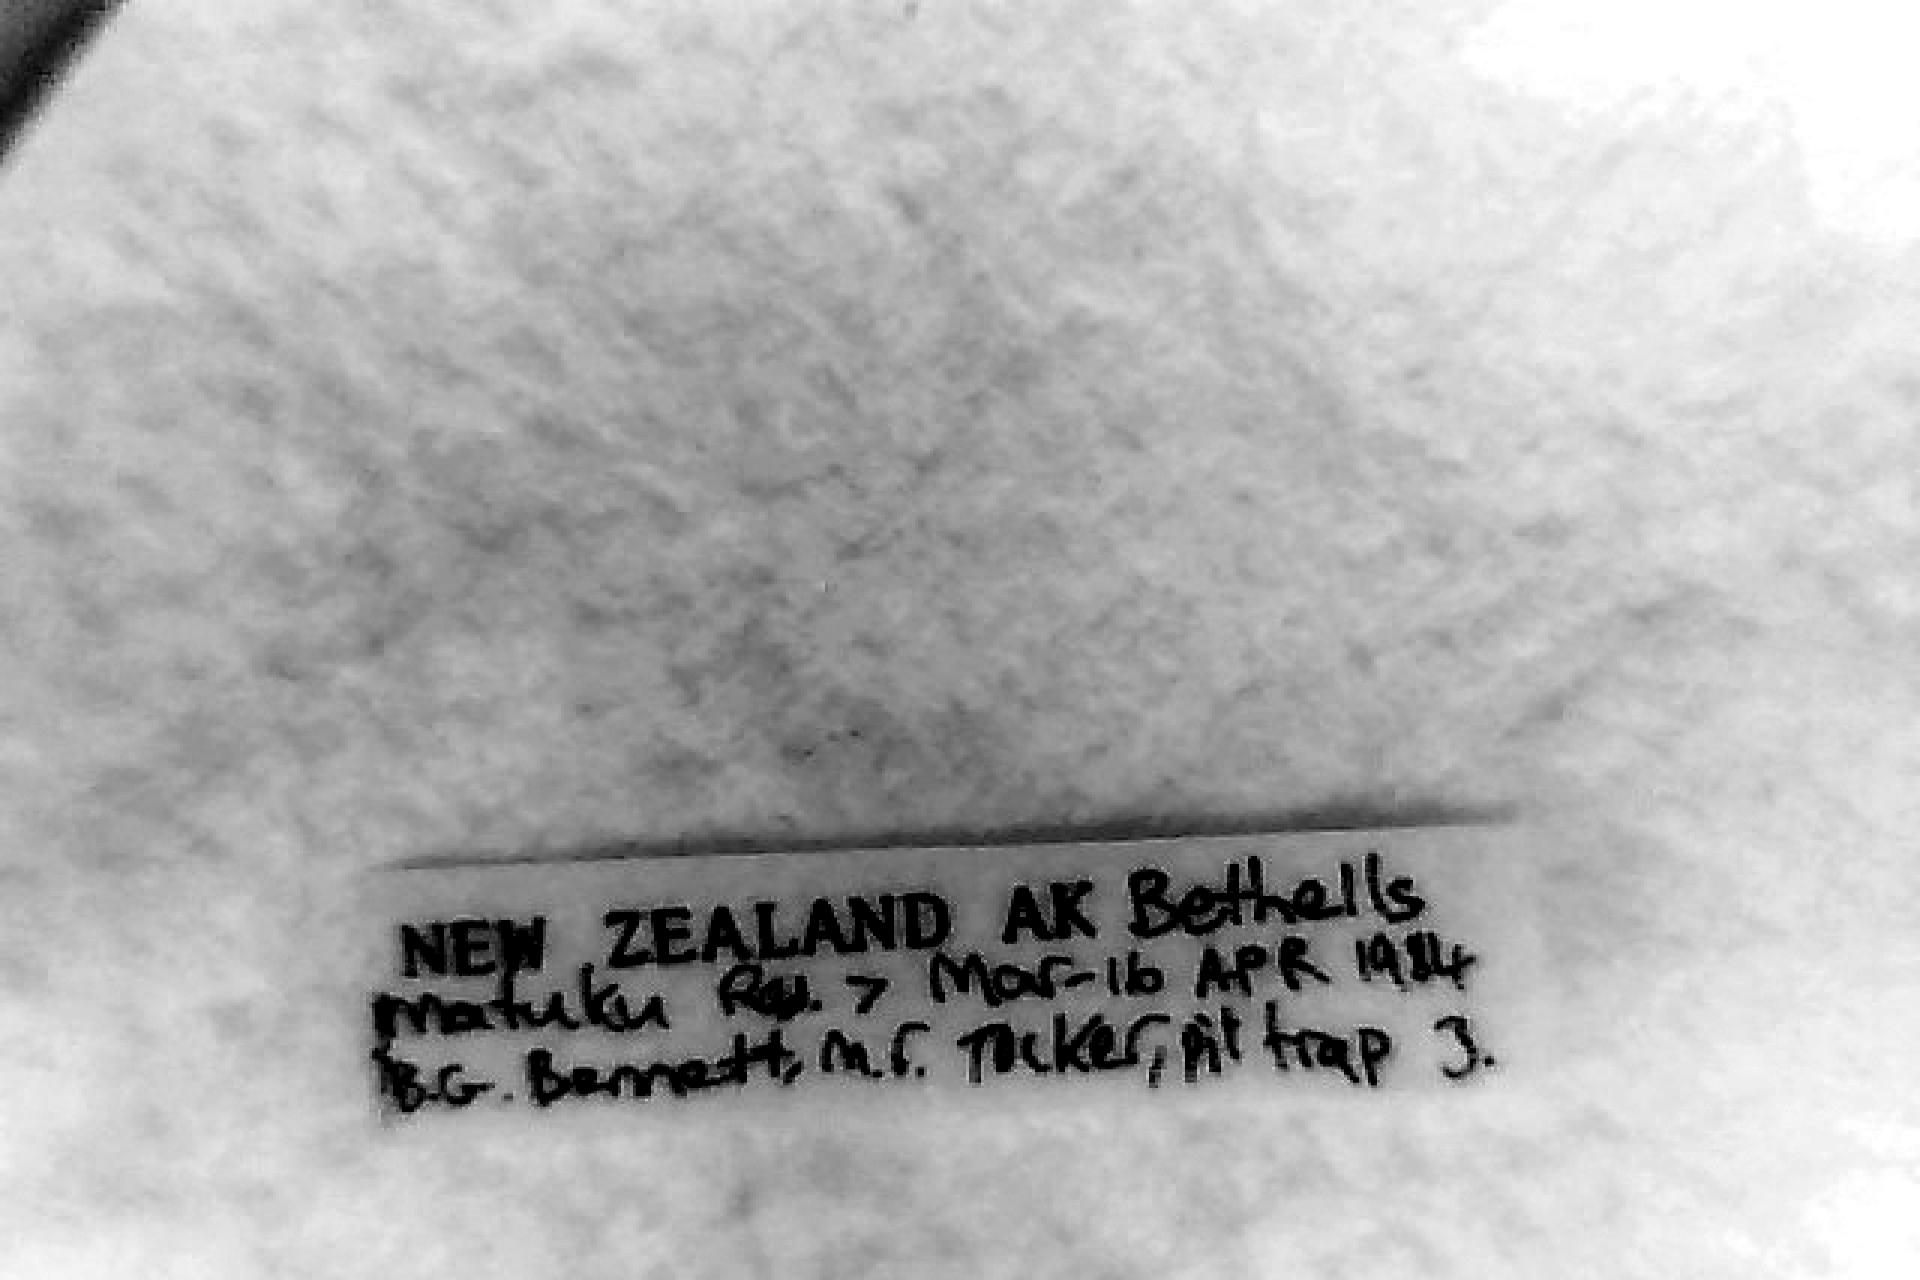 NEW ZEALAND AK Bethells
Matuku Res. 7 Mar-16 APR 1984
B.G. Bennett, M.F. Tocker, pit trap 3.